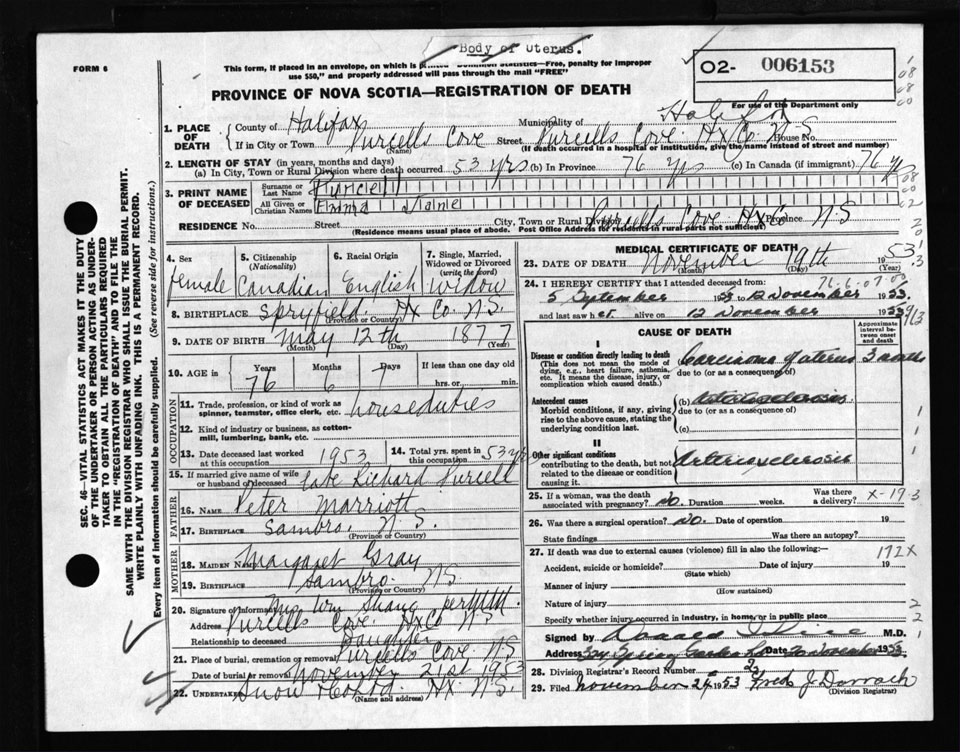 Body of Uterus.
FORM 6
This form, if placed in an envelope, on which is printed "Dominion Statistics—Free, penalty for improper
use $50," and properly addressed will pass through the mail "FREE"
O2- 006153
For use of the Department only
PROVINCE OF NOVA SCOTIA—REGISTRATION OF DEATH
1. PLACE OF DEATH
County of Halifax Municipality of Halifax
If in City or Town Purcells Cove Street Purcells Cove Hx Co. N.S House No.
(Name) (If death occurred in a hospital or institution, give the name instead of street and number)
2. LENGTH OF STAY (in years, months and days)
(a) In City, Town or Rural Division where death occurred 53 yrs (b) In Province 76 yrs (c) In Canada (if immigrant) 76 yrs
3. PRINT NAME OF DECEASED
Surname or Last Name Purcell
All Given or Christian Names Emma Jane
RESIDENCE No. Street City, Town or Rural Division Purcells Cove Hx Co Province N.S
(Residence means usual place of abode. Post Office Address for residents in rural parts not sufficient)
4. Sex female
5. Citizenship (Nationality) Canadian
6. Racial Origin English
7. Single, Married, Widowed or Divorced (write the word) Widow
8. BIRTHPLACE Spryfield Hx Co. N.S.
(Province or Country)
9. DATE OF BIRTH May 12th 1877
(Month) (Day) (Year)
10. AGE Years 76 Months 6 Days If less than one day old hrs. or min.
OCCUPATION
11. Trade, profession, or kind of work as spinner, teamster, office clerk, etc. houseduties
12. Kind of industry or business, as cotton-mill, lumbering, bank, etc.
13. Date deceased last worked at this occupation 1953
14. Total yrs. spent in this occupation 53 yrs
15. If married give name of wife or husband of deceased Late Richard Purcell
FATHER
16. Name Peter Marriott
17. Birthplace Sambro, N.S.
(Province or Country)
MOTHER
18. Maiden Name Margaret Gray
19. Birthplace Sambro. N.S.
(Province or Country)
20. Signature of Informant Mrs Wm Shang per
Address Purcells Cove Hx Co N.S
Relationship to deceased Daughter
21. Place of burial, cremation or removal Purcells Cove N.S
Date of burial or removal November 21st 1953
22. Undertaker Snow & Co Ltd. Hx N.S.
(Name and address)
MEDICAL CERTIFICATE OF DEATH
23. DATE OF DEATH November 19th 1953
(Month) (Day) (Year)
24. I HEREBY CERTIFY that I attended deceased from:
5 September 1953 to 12 November 1953
and last saw her alive on 12 November 1953
CAUSE OF DEATH
Approximate interval between onset and death
I
Disease or condition directly leading to death
(This does not mean the mode of dying, e.g., heart failure, asthenia, etc. It means the disease, injury, or complication which caused death.)
Carcinoma of uterus 3 months
due to (or as a consequence of)
Antecedent causes
Morbid conditions, if any, giving rise to the above cause, stating the underlying condition last.
(b) Arteriosclerosis
due to (or as a consequence of)
(c)
II
Other significant conditions
contributing to the death, but not related to the disease or condition causing it.
Arteriosclerosis
25. If a woman, was the death associated with pregnancy? No. Duration weeks. Was there a delivery? X-19-3
26. Was there a surgical operation? No. Date of operation 19
State findings Was there an autopsy?
27. If death was due to external causes (violence) fill in also the following:— 172X
Accident, suicide or homicide? Date of injury 19
(State which)
Manner of injury
(How sustained)
Nature of injury
Specify whether injury occurred in industry, in home, or in public place
Signed by Donald M.D.
Address Spring Garden Rd Date 20 November 1953
28. Division Registrar's Record Number 2
29. Filed November 24 1953 Fred J Darrach
(Division Registrar)
SEC. 46—VITAL STATISTICS ACT MAKES IT THE DUTY
OF THE UNDERTAKER OR PERSON ACTING AS UNDER-
TAKER TO OBTAIN ALL THE PARTICULARS REQUIRED
IN THE "REGISTRATION OF DEATH" AND TO FILE THE
SAME WITH THE DIVISION REGISTRAR WHO SHALL ISSUE THE BURIAL PERMIT.
WRITE PLAINLY WITH UNFADING INK. THIS IS A PERMANENT RECORD.
Every item of information should be carefully supplied. (See reverse side for instructions.)